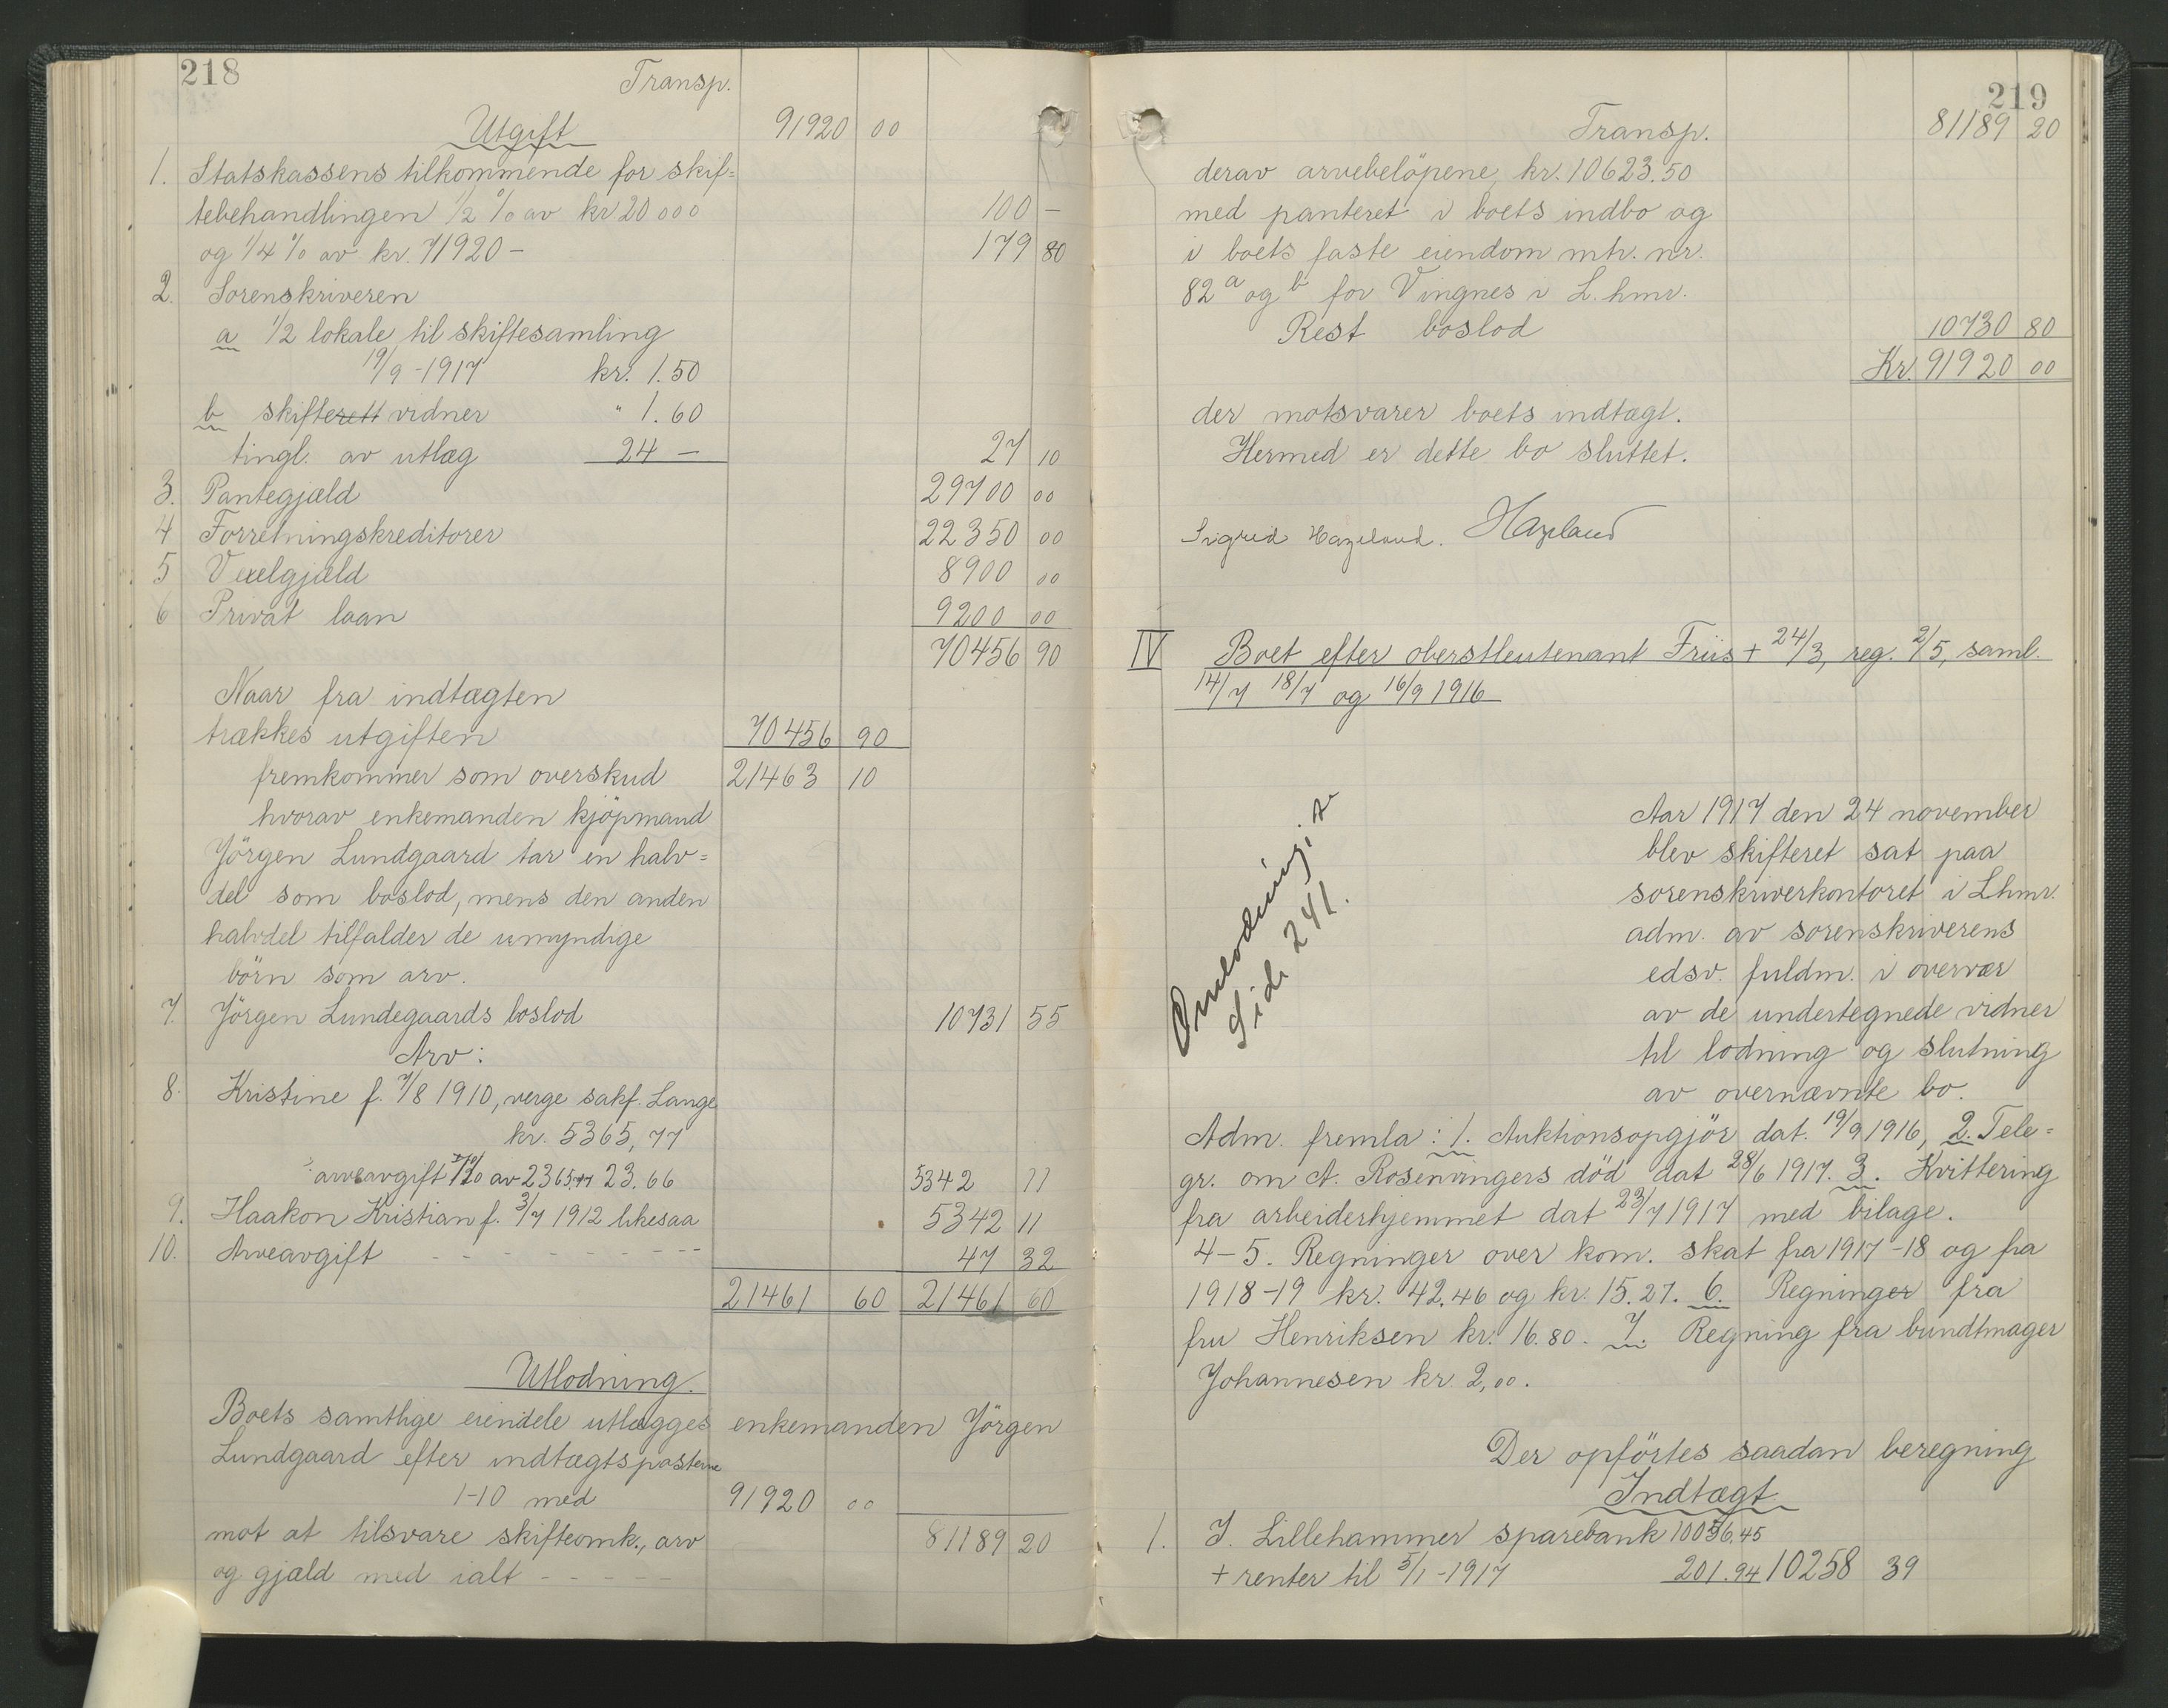 218
Transp.
Utgift 91920 00
1. Statskassens tilkommende for skif=
tebehandlingen 1/2 % av kr 20000 100 –
og 1/4 % av kr. 71920 – 179 80
2. Sorenskriveren
a 1/2 lokale til skiftesamling
19/9 - 1917 kr. 1.50
b skifterett vidner " 1.60
tingl. av utlæg 24 – 27 10
3. Pantegjæld 29700 00
4 Forretningskreditorer 22350 00
5 Vexelgjæld 8900 00
6 Privat laan 9200 00
70456 90
Naar fra indtægten
trækkes utgiften 70456 90
fremkommer som overskud 21463 10
hvorav enkemanden kjöpmand
Jörgen Lundgaard tar en halv=
del som boslod, mens den anden
halvdel tilfalder de umyndige
börn som arv.
7. Jörgen Lundegaards boslod 10731 55
Arv:
8. Kristine f. 7/8 1910, verge sakf. Lange
kr. 5365,77
÷ arveavgift av 2365.77 23.66 5342 11
9. Haakon Kristian f. 3/7 1912 likesaa 5342 11
10. Arveavgift - - - - - - - - 47 32
21461 60 21461 60
Utlodning.
Boets samtlige eiendele utlægges enkemanden Jörgen
Lundgaard efter indtægtsposterne
1-10 med 91920 00
mot at tilsvare skifteomk., arv 81189 20
og gjæld med ialt - - - - -
219
Transp. 81189 20
derav arvebelöpene kr. 10623.50
med panteret i boets indbo og
i boets faste eiendom mtr. nr.
82 a og b for Vingnes i L.hmr.
Rest boslod 10730 80
Kr. 91920 00
der motsvarer boets indtægt.
Hermed er dette bo sluttet.
Sigrid Hazeland. Hazeland
IV Boet efter oberstleutenant Friis + 24/3, reg. 2/5, saml.
14/7 18/7 og 16/9 1916
Omlodning,
Side 241.
Aar 1917 den 24 november
blev skifteret sat paa
sorenskriverkontoret i Lhmr.
adm. av sorenskriverens
edsv. fuldm. i overvær
av de undertegnede vidner
til lodning og slutning
av overnævnte bo.
Adm. fremla: 1. Auktionsopgjör dat. 19/9 1916, 2. Tele=
gr. om A. Rosenvingers död dat 28/6 1917. 3. Kvittering
fra arbeiderhjemmet dat 23/7 1917 med bilage.
4-5. Regninger over kom. skat fra 1917-18 og fra
1918-19 kr. 42.46 og kr. 15.27. 6. Regninger fra
fru Henriksen kr. 16.80. 7. Regning fra bundtmager
Johannesen kr 2,00.
Der opförtes saadan beregning
Indtægt
1. I. Lillehammer sparebank 10056.45
+ renter til 5/1 - 1917 201.94 10258 39